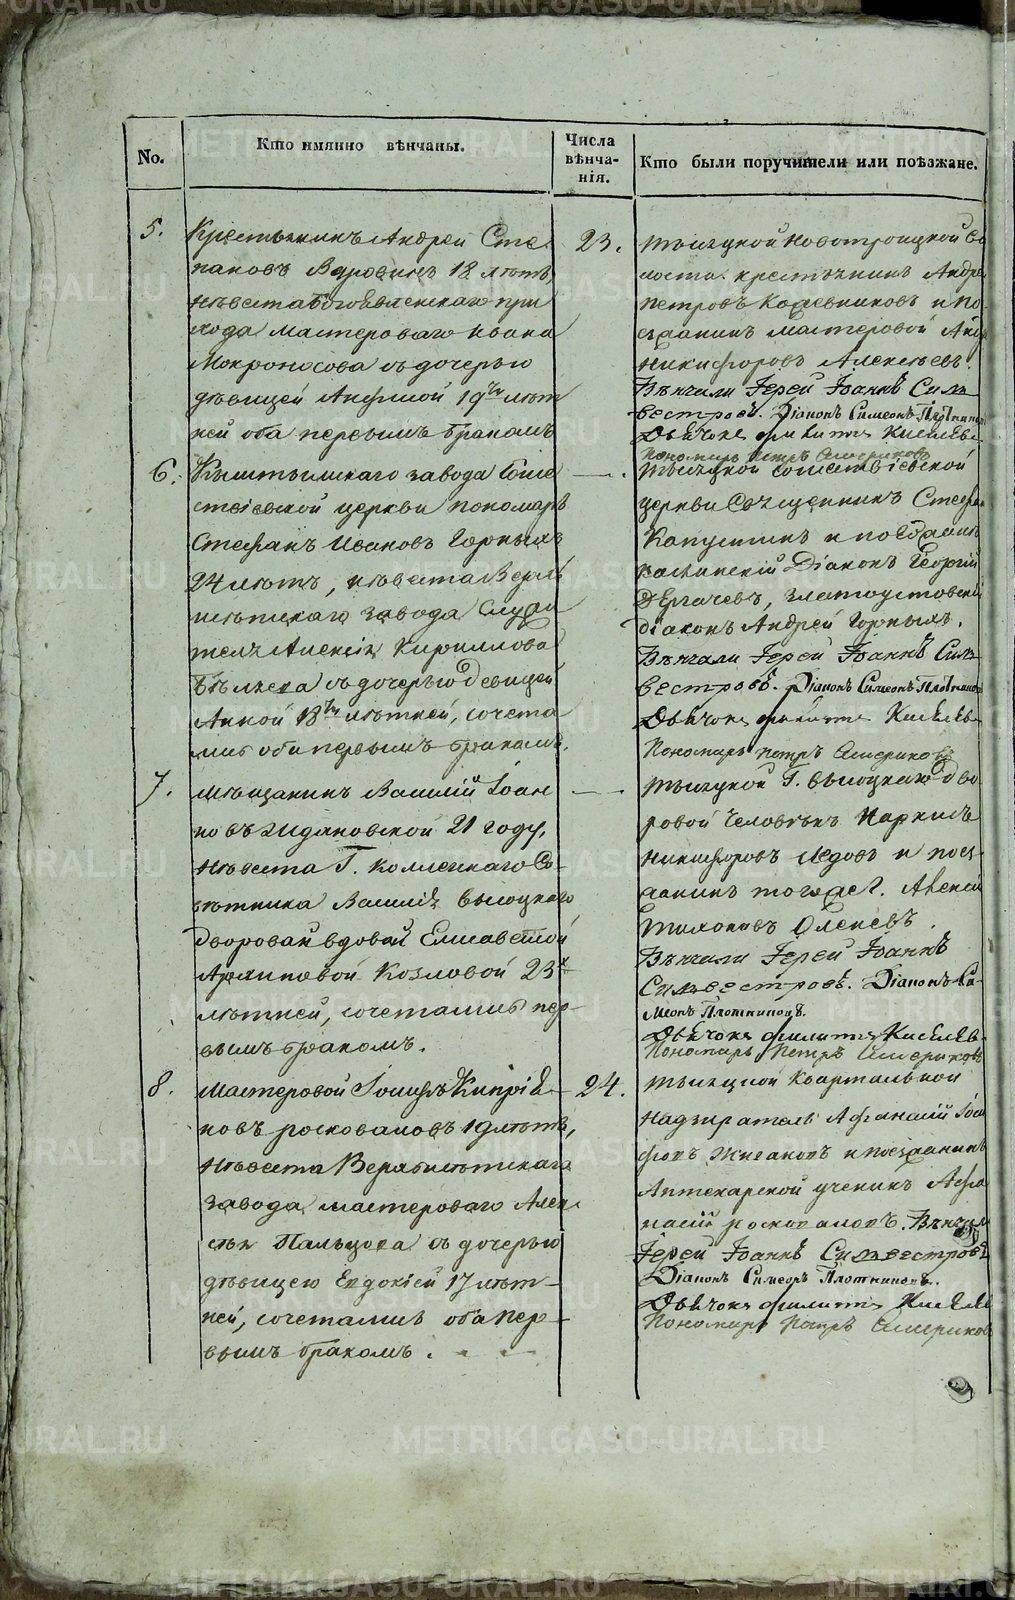 METRIKI.GASO-URAL.RU
No.
Кто имянно вѣнчаны.
Числа
вѣнча-
нія.
Кто были поручители или поѣзжане.
5.
Крестьянинъ Андрей Сте
пановъ Вдовинъ 18 лѣтъ,
невѣста Богоявленскаго при
хода мастероваго Ивана
Мокроносова съ дочерью
дѣвицей Анфисой 19ти лѣт
ней оба первымъ бракомъ
23.
тысяцкой Новотроицкой во
лости крестьянинъ Андре
Петровъ Кожевниковъ и по
езжанинъ мастеровой
Никифоровъ Алексѣевъ.
Вѣнчали Іерей Іоаннъ Силь
вестровъ. Діаконъ Симеонъ Плотников
Дьячокъ Филиппъ Киселевъ
Пономарь Петръ
6.
Кыштымскаго завода Соше
ствіевской церкви пономарь
Стефанъ Ивановъ Горныхъ
24 лѣтъ, невѣста Верхъ
исѣтскаго завода служи
теля Алексія Кириллова
Бѣляева съ дочерью дѣвицей
Анной 18ти лѣтней, сочета
лись оба первымъ бракомъ.
тысяцкой Сошествіевской
церкви Священникъ Стефан
Капустинъ и поѣзжане
Каслинскій Діаконъ Георгій
Дергачевъ, Златоустовскій
діаконъ Андрей Горныхъ.
Вѣнчали Іерей Іоаннъ Силь
вестровъ. Діаконъ Симеонъ Плотников
Дьячокъ Филиппъ Киселевъ
Пономарь Петръ
7.
Мѣщанинъ Василій Іоан
новъ Ждановской 21 году,
невѣста Г. Коллежскаго Со
вѣтника Василія Высоцкаго
дворовая вдовой Елисаветой
Архиповой Козловой 23х
лѣтней, сочетались пер
вымъ бракомъ.
тысяцкой Г. Высоцкаго дво
ровой человѣкъ Наркисъ
Никифоровъ Ледовъ и поез
жанинъ тогоже Г. Алексей
Тихоновъ
Вѣнчали Іерей Іоаннъ
Сильвестровъ. Діаконъ Си-
меонъ Плотниковъ.
Дьячокъ Филиппъ Киселевъ
Пономарь Петръ
8.
Мастеровой Іосифъ Кипріа
новъ Росковаловъ 19 лѣтъ,
невѣста Верхъисѣтскаго
завода мастероваго Алек
сѣя Пальцова съ дочерью
дѣвицею Евдокіей 17 лѣт
ней, сочетались оба пер
вымъ бракомъ.
24.
тысяцкой Квартальной
надзиратель Афанасій Іоси
фовъ Жигаловъ и поезжанинъ
Аптекарской ученикъ Афа
насій Росковаловъ. Вѣнчали
Іерей Іоаннъ Сильвестровъ
Діаконъ Симеонъ Плотниковъ.
Дьячокъ Филиппъ Киселевъ
Пономарь Петръ